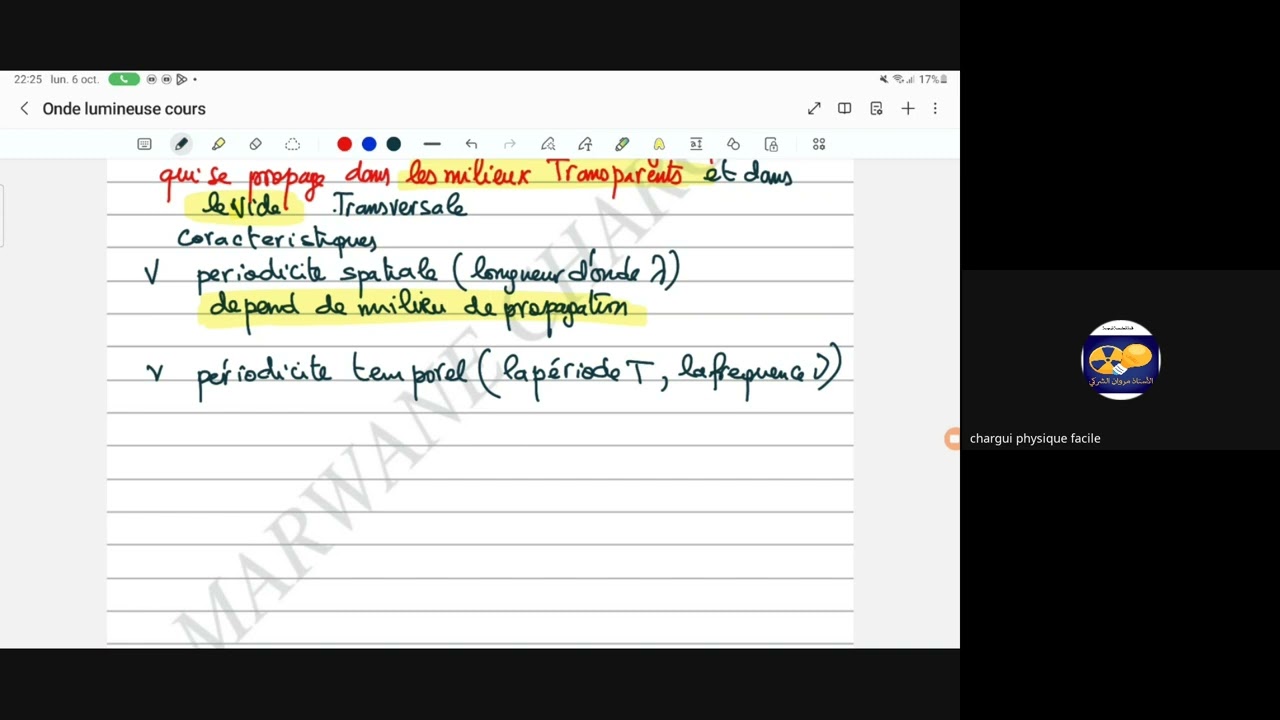 22:25 lun. 6 oct. 17%
Onde lumineuse cours
qui se propage dans les milieux Transparents et dans
le Vide . Transversale
Coracteristiques
V periodicite spatiale ( longueur d'onde λ)
depend de milieu de propagation
v périodicite temporel ( la période T , la frequence ν)
MARWANE CHAR
الأستاذ مروان الشرقي
chargui physique facile